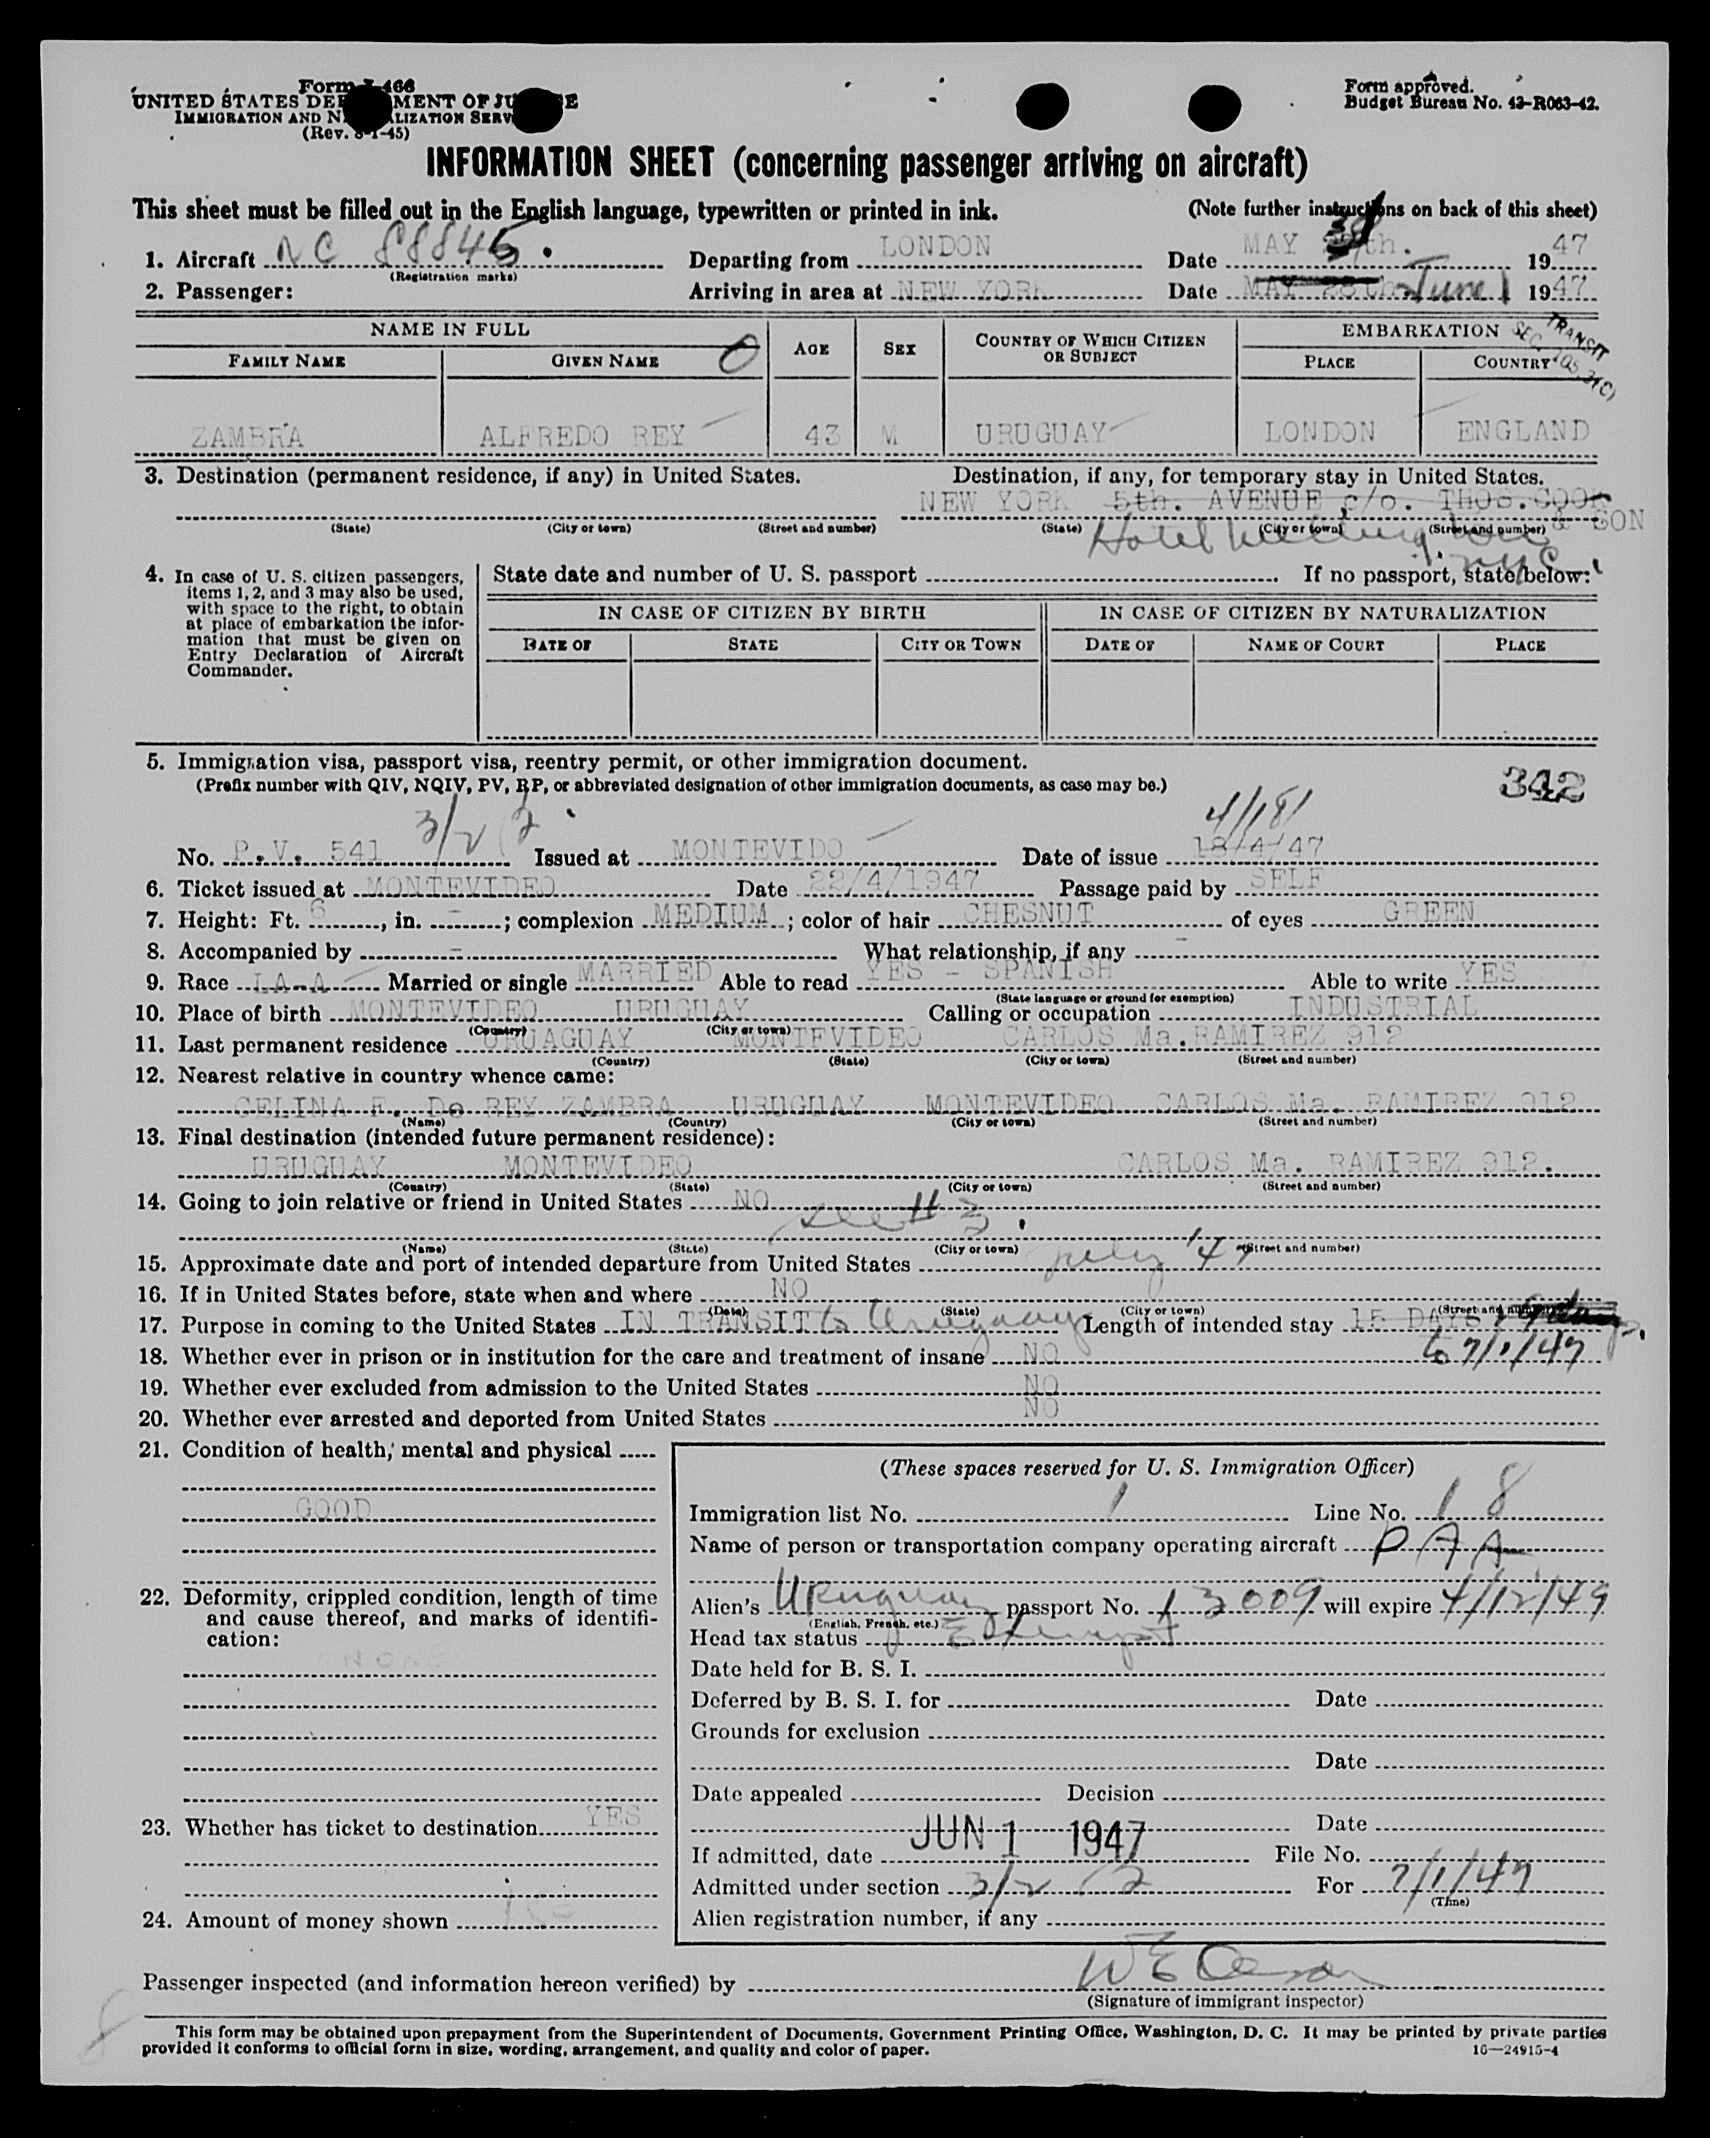 Form I-466
UNITED STATES DEPARTMENT OF JUSTICE
IMMIGRATION AND NATURALIZATION SERVICE
(Rev. 8-1-45)
Form approved.
Budget Bureau No. 43-R063-42.
INFORMATION SHEET (concerning passenger arriving on aircraft)
This sheet must be filled out in the English language, typewritten or printed in ink. (Note further instructions on back of this sheet)
1. Aircraft NC 88845. Departing from LONDON Date MAY 31 th. 1947
(Registration marks)
2. Passenger: Arriving in area at NEW YORK Date MAY 28th June 1 1947
NAME IN FULL AGE SEX COUNTRY OF WHICH CITIZEN OR SUBJECT EMBARKATION
TRANSIT
SEC.
FAMILY NAME GIVEN NAME O PLACE COUNTRY
ZAMBRA ALFREDO REY 43 M URUGUAY LONDON ENGLAND
3. Destination (permanent residence, if any) in United States. Destination, if any, for temporary stay in United States.
NEW YORK 5th. AVENUE c/o. THOS. COOK
& SON
(State) (City or town) (Street and number) (State) (City or town) (Street and number)
Hotel
N.Y.C.
4. In case of U. S. citizen passengers, items 1, 2, and 3 may also be used, with space to the right, to obtain at place of embarkation the information that must be given on Entry Declaration of Aircraft Commander.
State date and number of U. S. passport If no passport, state below:
IN CASE OF CITIZEN BY BIRTH IN CASE OF CITIZEN BY NATURALIZATION
DATE OF STATE CITY OR TOWN DATE OF NAME OF COURT PLACE
5. Immigration visa, passport visa, reentry permit, or other immigration document.
(Prefix number with QIV, NQIV, PV, RP, or abbreviated designation of other immigration documents, as case may be.)
342
3/2 (2 4/18/
No. P.V. 541 Issued at MONTEVIDO Date of issue 18/4/47
6. Ticket issued at MONTEVIDEO Date 22/4/1947 Passage paid by SELF
7. Height: Ft. 6, in. -; complexion MEDIUM; color of hair CHESNUT of eyes GREEN
8. Accompanied by - What relationship, if any -
9. Race LA-A Married or single MARRIED Able to read YES - SPANISH Able to write YES
(State language or ground for exemption)
10. Place of birth MONTEVIDEO URUGUAY Calling or occupation INDUSTRIAL
(Country) (City or town)
11. Last permanent residence URUAGUAY MONTEVIDEO CARLOS Ma. RAMIREZ 912
(Country) (State) (City or town) (Street and number)
12. Nearest relative in country whence came:
CELINA F. De REY ZAMBRA URUGUAY MONTEVIDEO CARLOS Ma. RAMIREZ 912
(Name) (Country) (City or town) (Street and number)
13. Final destination (intended future permanent residence):
URUGUAY MONTEVIDEO CARLOS Ma. RAMIREZ 912.
(Country) (State) (City or town) (Street and number)
14. Going to join relative or friend in United States NO
see # 3.
(Name) (State) (City or town) (Street and number)
15. Approximate date and port of intended departure from United States July '47
16. If in United States before, state when and where NO
(Date) (State) (City or town) (Street and number)
17. Purpose in coming to the United States IN TRANSIT to Uruguay Length of intended stay 15 DAYS
to 7/1/47
18. Whether ever in prison or in institution for the care and treatment of insane NO
19. Whether ever excluded from admission to the United States NO
20. Whether ever arrested and deported from United States NO
21. Condition of health, mental and physical
GOOD
22. Deformity, crippled condition, length of time and cause thereof, and marks of identification:
NONE
23. Whether has ticket to destination YES
24. Amount of money shown
(These spaces reserved for U. S. Immigration Officer)
Immigration list No. 1 Line No. 18
Name of person or transportation company operating aircraft PAA
Alien's Uruguay passport No. 13009 will expire 4/12/49
(English, French, etc.)
Head tax status Exempt
Date held for B. S. I.
Deferred by B. S. I. for Date
Grounds for exclusion
Date
Date appealed Decision
Date
If admitted, date JUN 1 1947 File No.
Admitted under section 3/2 (2 For 7/1/47
(Time)
Alien registration number, if any
Passenger inspected (and information hereon verified) by
(Signature of immigrant inspector)
This form may be obtained upon prepayment from the Superintendent of Documents, Government Printing Office, Washington, D. C. It may be printed by private parties
provided it conforms to official form in size, wording, arrangement, and quality and color of paper. 16—24915-4